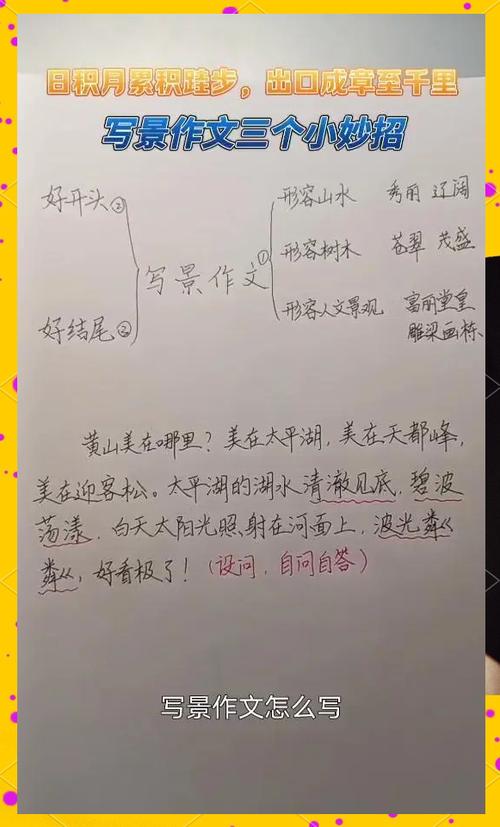 日积月累积跬步，出口成章至千里
写景作文三个小妙招
好开头②
好结尾②
写景作文①
形容山水 秀丽 辽阔
形容树木 苍翠 茂盛
形容人文景观 富丽堂皇
雕梁画栋
黄山美在哪里？美在太平湖，美在天都峰，
美在迎客松。太平湖的湖水清澈见底，碧波
荡漾，白天太阳光照射在河面上，波光粦〻
粦〻，好看极了！（设问，自问自答）
写景作文怎么写